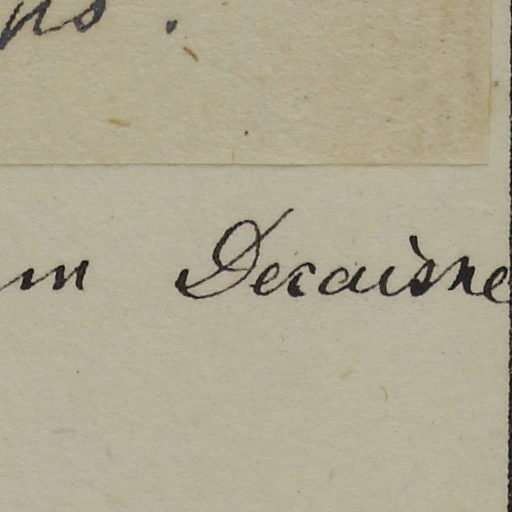 m Decaisne